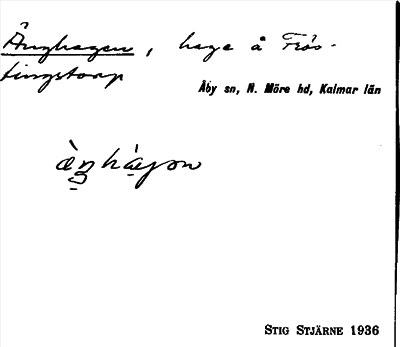 Änghagen, hage å Frös-
tingstorp
Åby sn, N. Möre hd, Kalmar län
STIG STJÄRNE 1936